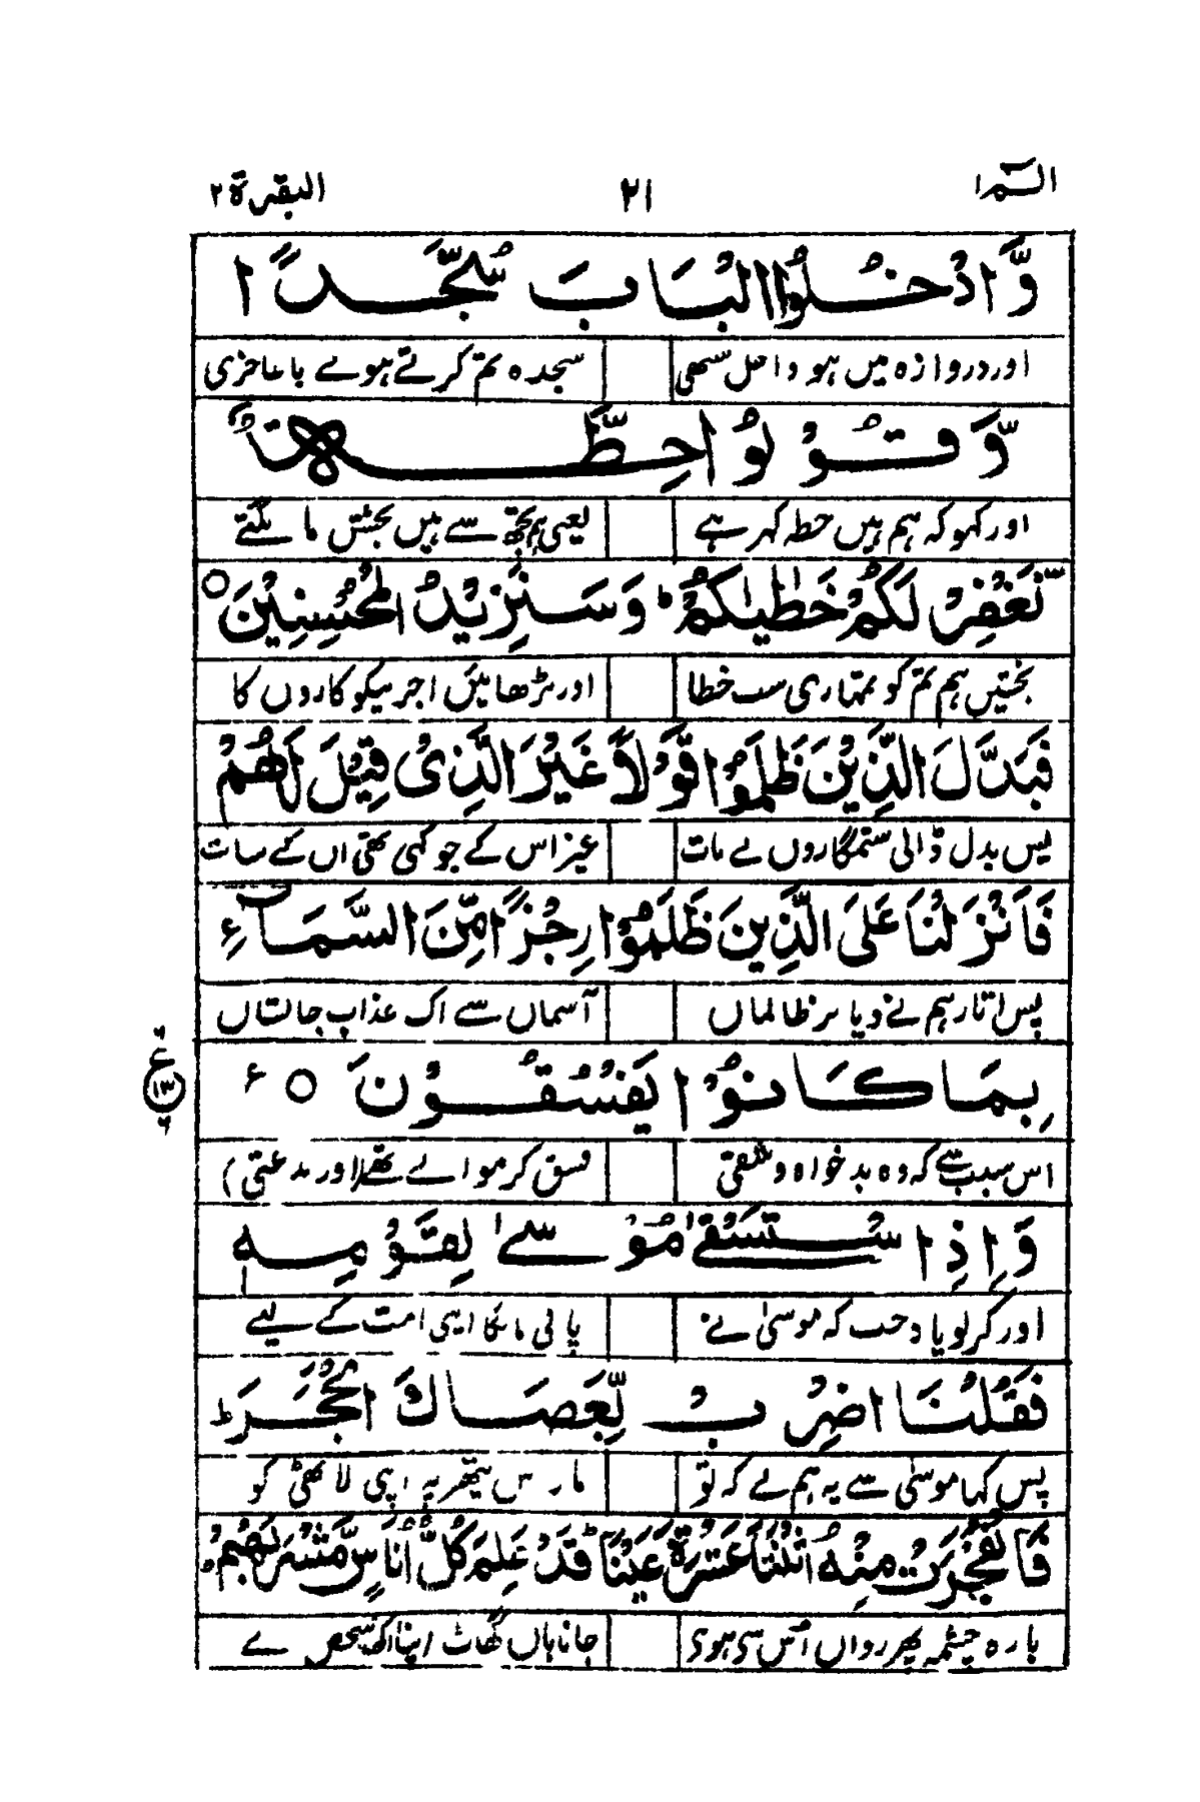 الٓمّٓ ۱ ۲۱ البقرة ۲
وَّادْخُلُوا الْبَابَ سُجَّدًا
اور دروازہ میں ہو داخل سبھی سجدہ تم کرتے ہوئے با عاجزی
وَّقُوْلُوْا حِطَّةٌ
اور کہو کہ ہم ہیں حطہ کہہ رہے یعنی ہم تجھ سے ہیں بخشش مانگتے
نَّغْفِرْ لَكُمْ خَطٰيٰكُمْ ؕ وَسَنَزِيْدُ الْمُحْسِنِيْنَ ○
بخشیں ہم تم کو تمہاری سب خطا اور بڑھائیں اجر نیکو کاروں کا
فَبَدَّلَ الَّذِيْنَ ظَلَمُوْا قَوْلًا غَيْرَ الَّذِىْ قِيْلَ لَهُمْ
پس بدل ڈالی ستمگاروں نے بات غیر اس کے جو کہی تھی ان کے سات
فَاَنْزَلْنَا عَلَى الَّذِيْنَ ظَلَمُوْا رِجْزًا مِّنَ السَّمَآءِ
پس اتار ہم نے دیا بر ظالماں آسماں سے اک عذاب جانستاں
بِمَا كَانُوْا يَفْسُقُوْنَ ○ ع
ع ۱۳ ۶
اس سبب سے کہ وہ بد خواہ و شقی فسق کرنے والے تھے (اور بدعتی)
وَاِذِ اسْتَسْقٰى مُوْسٰى لِقَوْمِهٖ
اور کر لو یاد جب کہ موسیٰ نے پانی مانگا اپنی امت کے لیے
فَقُلْنَا اضْرِبْ بِّعَصَاكَ الْحَجَرَ ؕ
پس کہا موسیٰ سے یہ ہم نے کہ تو مار اس پتھر پہ اپنی لاٹھی کو
فَانْفَجَرَتْ مِنْهُ اثْنَتَا عَشْرَةَ عَيْنًا ؕ قَدْ عَلِمَ كُلُّ اُنَاسٍ مَّشْرَبَهُمْ ؕ
بارہ چشمہ پھر رواں اس سے ہوئے جانا ہاں گھاٹ اپنا اک شخص نے